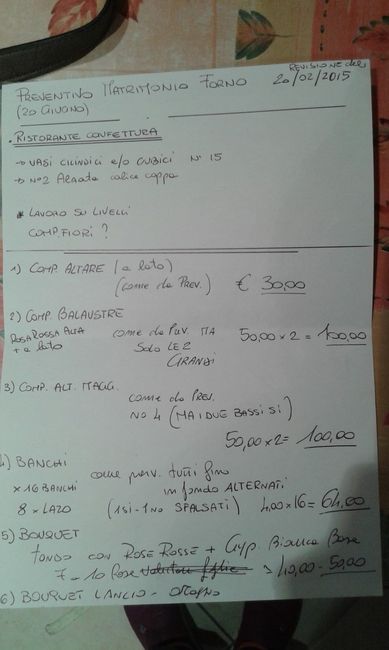 REVISIONE del
PREVENTIVO MATRIMONIO FORNO 20/02/2015
(20 GIUGNO)
• RISTORANTE CONFETTURA
→ VASI CILINDICI e/o CUBICI N° 15
→ N°2 Alzate calice coppa
* LAVORO SU LIVELLI
COMP. FIORI ?
1) COMP. ALTARE (a lato)
(come da Prev.) € 30,00
2) COMP. BALAUSTRE
ROSA ROSSA ALTA come da Prev. MA 50,00 x 2 = 100,00
+ a lato SOLO LE 2
GRANDI
3) COMP. ALT. MAGG.
come da Prev.
NO 4 (MA I DUE BASSI SI)
50,00 x 2 = 100,00
4) BANCHI
come prev. tutti fino
x 16 BANCHI in fondo ALTERNATI
8 x LATO (1 SI - 1 NO SFALSATI) 4,00 x 16 = 64,00
5) BOUQUET
TONDO CON ROSE ROSSE + Gyp. Bianca Base
7 - 10 Rose 40,00 - 50,00
6) BOUQUET LANCIO - OMAGGIO